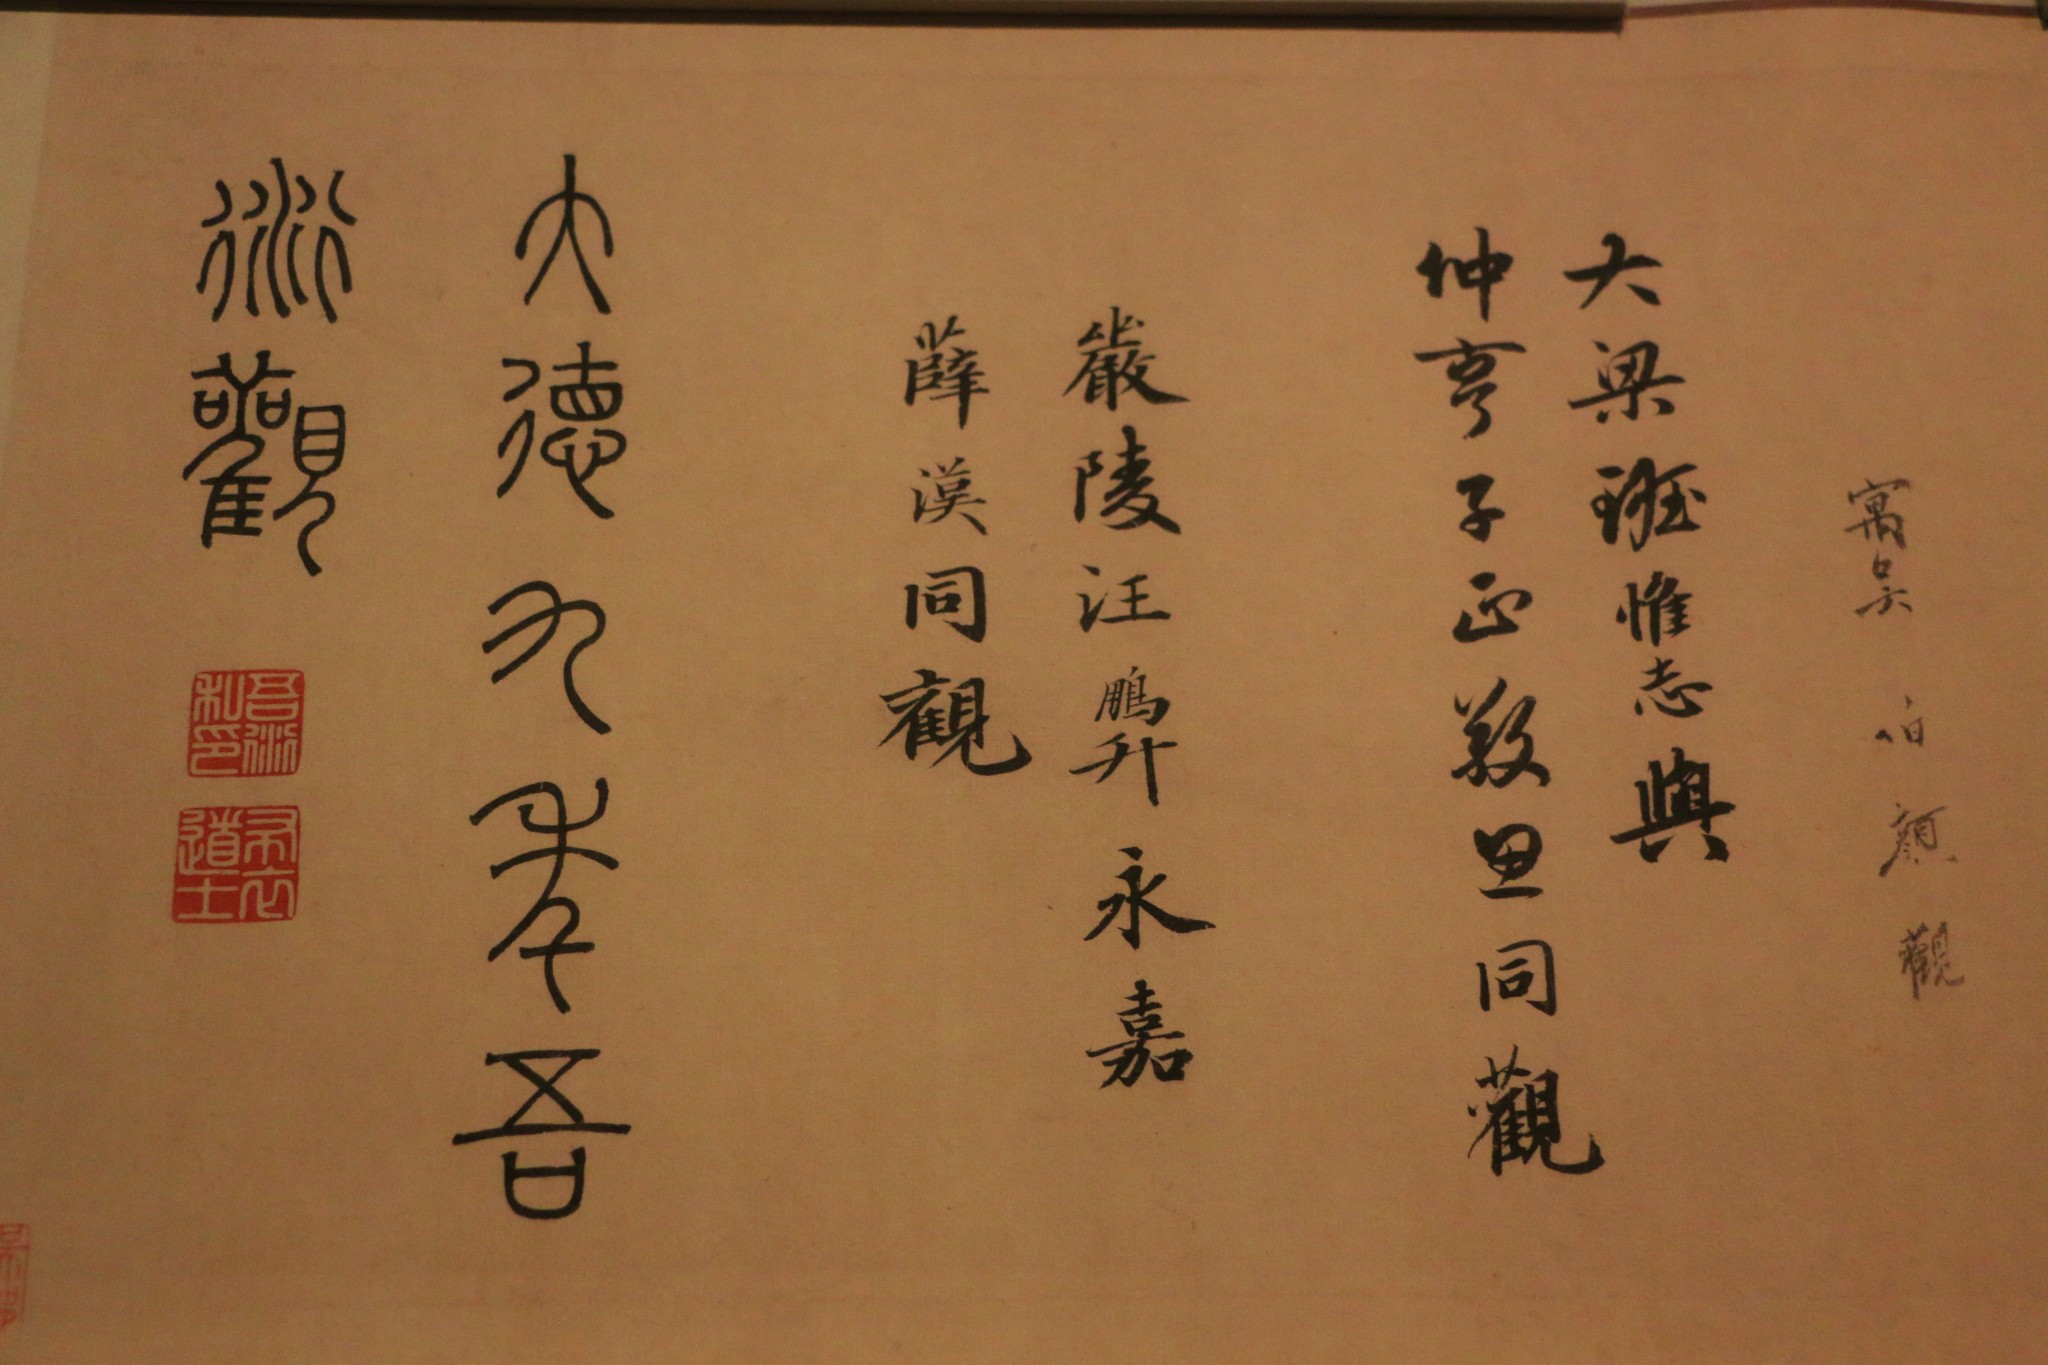 寓吳 伯顏觀
大梁班惟志與
仲亨子正敬思同觀
嚴陵汪鵬升永嘉
薛漢同觀
大德九季吾
衍觀
吾衍私印
布衣道士